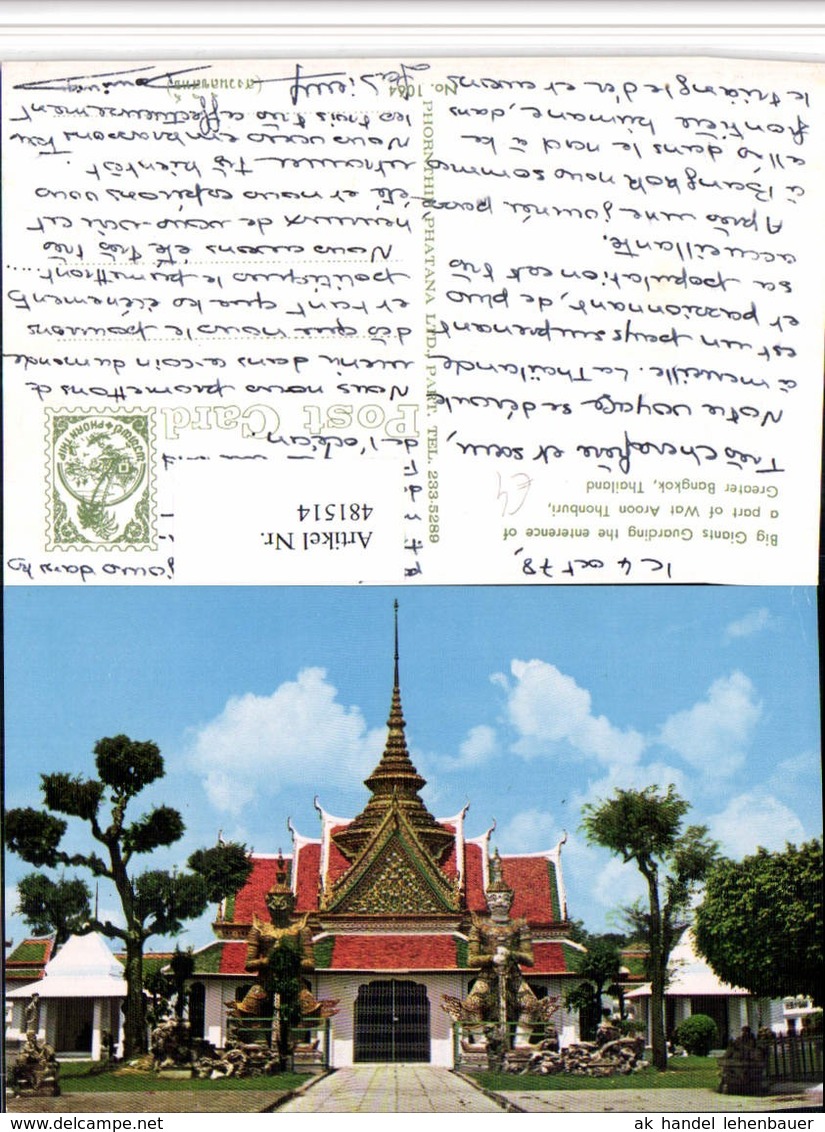 Big Giants Guarding the enterence of
a part of Wat Aroon Thonburi,
Greater Bangkok, Thailand
le 4 oct 78,
Très cher frère et sœur,
Notre voyage se déroule
à merveille. La Thaïlande
est un pays surprenant
et passionnant, de plus
sa population est très
accueillante.
Après une journée passée
à Bangkok nous sommes
allés dans le nord à la
frontière birmane, dans
le triangle d'or et avons
PHORNTHIP PHATANA LTD., PART. TEL. 233-5289
No. 1064
(สงวนลิขสิทธิ์)
Post Card
PHORNTHIP
Artikel Nr.
481514
jours dans
de l'océan.
Nous nous promettons de
revenir dans ce coin du monde
dès que nous le pouvons
et tant que les événements
politiques le permettront
Nous avons été très très
heureux de vous voir cet
été et nous espérons vous
retrouver très bientôt.
Nous vous embrassons tous
les trois très affectueusement
ak handel lehenbauer